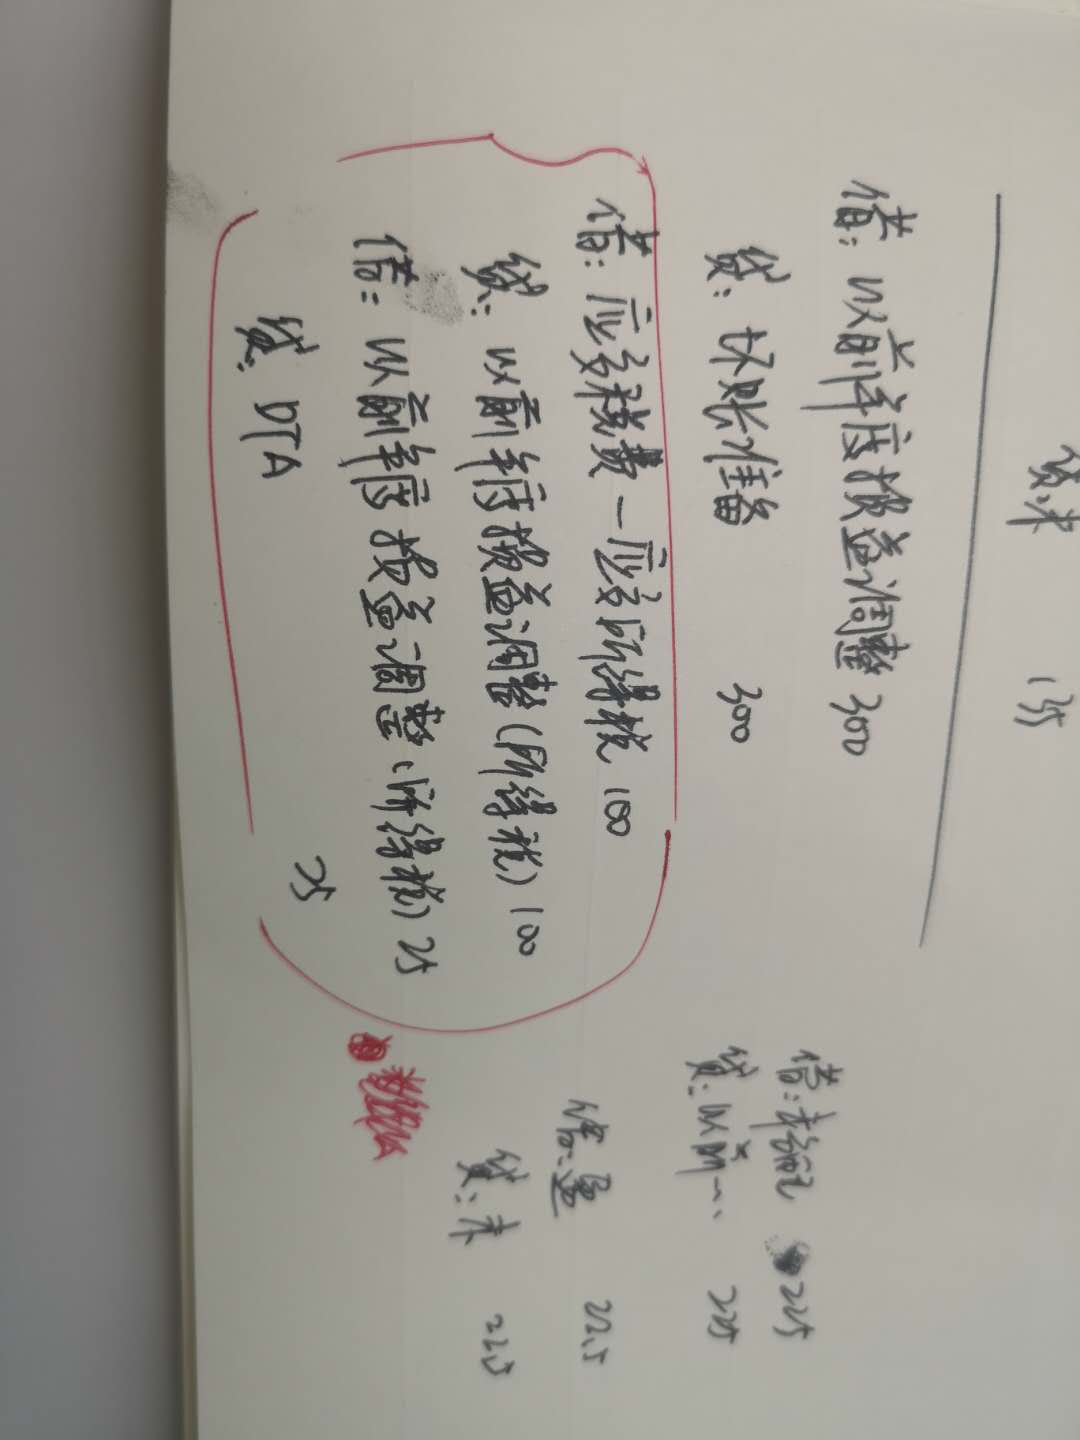 贷:未 135
借:以前年度损益调整 300
贷:坏账准备 300
借:应交税费—应交所得税 100
贷:以前年度损益调整(所得税)100
借:以前年度损益调整(所得税)25
贷:DTA 25
借:未分配 225
贷:以前… 225
借:盈 22.5
贷:未 22.5